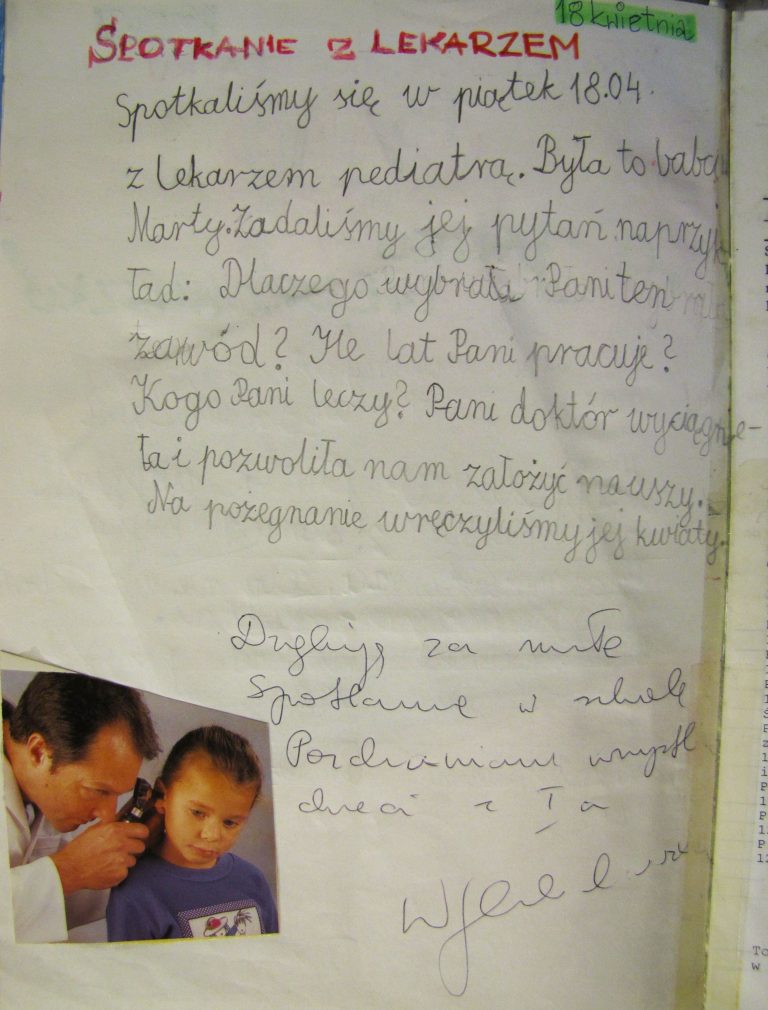 18 kwietnia
SPOTKANIE Z LEKARZEM
Spotkaliśmy się w piątek 18.04.
z lekarzem pediatrą. Była to babc
Marty. Zadaliśmy jej pytań naprzyk
ład: Dlaczego wybrała Pani ten
zawód? Ile lat Pani pracuje?
Kogo Pani leczy? Pani doktór wyciągnie-
ła i pozwoliła nam założyć na uszy.
Na pożegnanie wręczyliśmy jej kwiaty.
Dziękuję za miłe
spotkanie w szkole
Pozdrawiam wszystk
dzieci z I a